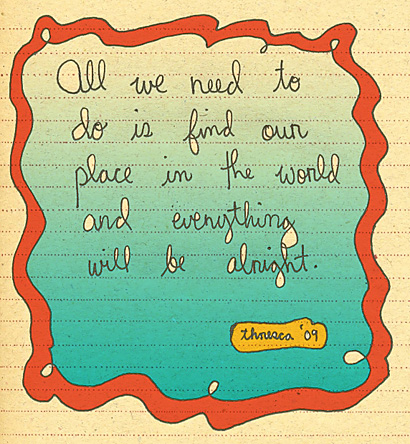 All we need to
do is find our
place in the world
and everything
will be alright.
thresca '09